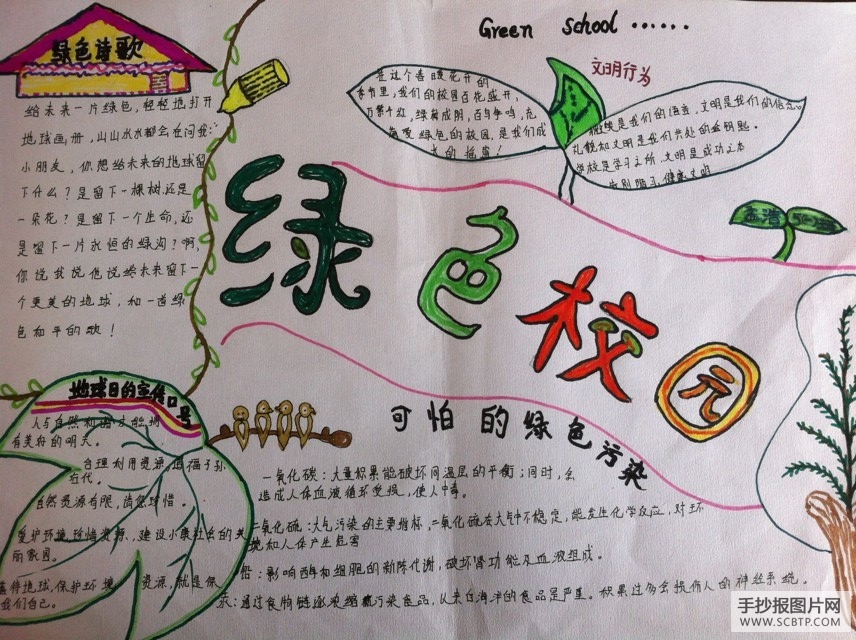 Green School ······
绿色诗歌
给未来一片绿色，轻轻地打开
地球画册，山山水水都会在问我：
小朋友，你想给未来的地球留
下什么？是留下一棵树还是
一朵花？是留下一个生命，还
是留下一片永恒的绿沟？啊，
你说我说他说给未来留下一
个更美的地球，和一首绿
色和平的歌！
文明行为
是这个春暖花开的
季节里，我们的校园百花盛开，
万紫千红，绿树成阴，百鸟争鸣，
绿色的校园，是我们成
长的摇篮！
是我们的语言，文明是我们的信念。
礼貌和文明是我们共处的金钥匙。
学校是学习之所 文明是成功之本
绿色校园
地球日的宣传口号
人与自然和
有美好的明天。
合理利用资源，造福子孙
近代。
自然资源有限，请您珍惜。
爱护环境 珍惜资源，建设小康社会的美
丽家园。
善待地球，保护环境 资源，就是保
我们自己。
可怕的绿色污染
一氧化碳：大量积累能破坏同温层的平衡；同时，会
造成人体血液循环受损，使人中毒。
二氧化硫：大气污染的主要指标，二氧化硫在大气中不稳定，能发生化学反应，对环
境和人体产生危害
铅：影响酶和细胞的新陈代谢，破坏肾功能及血液组成。
汞：通过食物链逐液缩 污染食品，从来自海洋的食品是严重。积累过多会损伤人的神经系统。
手抄报图片网
WWW.SCBTP.COM